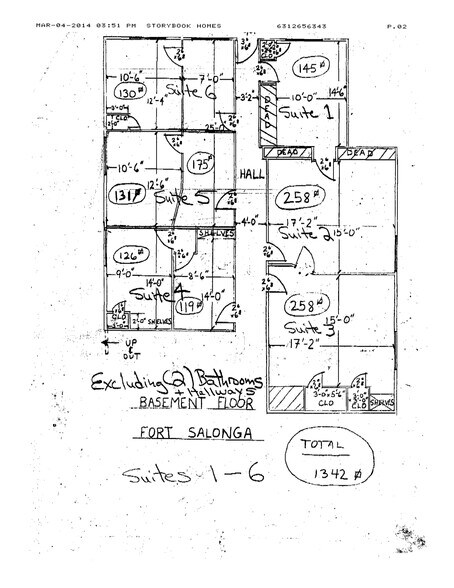 MAR-04-2014 03:51 PM STORYBOOK HOMES 6312656343 P.02
10'-6" 7'-0" 145⌀
130⌀ Suite 6
12'-4" 3'-2" 10'-0" 14'-6"
DEAD Suite 1 DEAD
CLO
25'-0"
DEAD DEAD
10'-6" 175⌀ HALL
131⌀ 12'-6" Suite 5 258⌀
4'-0" 17'-2"
SHELVES Suite 2 15'-0"
126⌀
9'-0" 8'-6"
14'-0" 258⌀
Suite 4 119⌀ 14'-0" 15'-0"
CLO 2'-0" SHELVES Suite 3
3'-0" 17'-2"
UP & OUT
Excluding (2) Bathrooms
+ Hallways
3'-0" 5'-6" CLO 3'-0" CLO SHELVES
BASEMENT FLOOR
FORT SALONGA
TOTAL
1342⌀
Suites 1-6